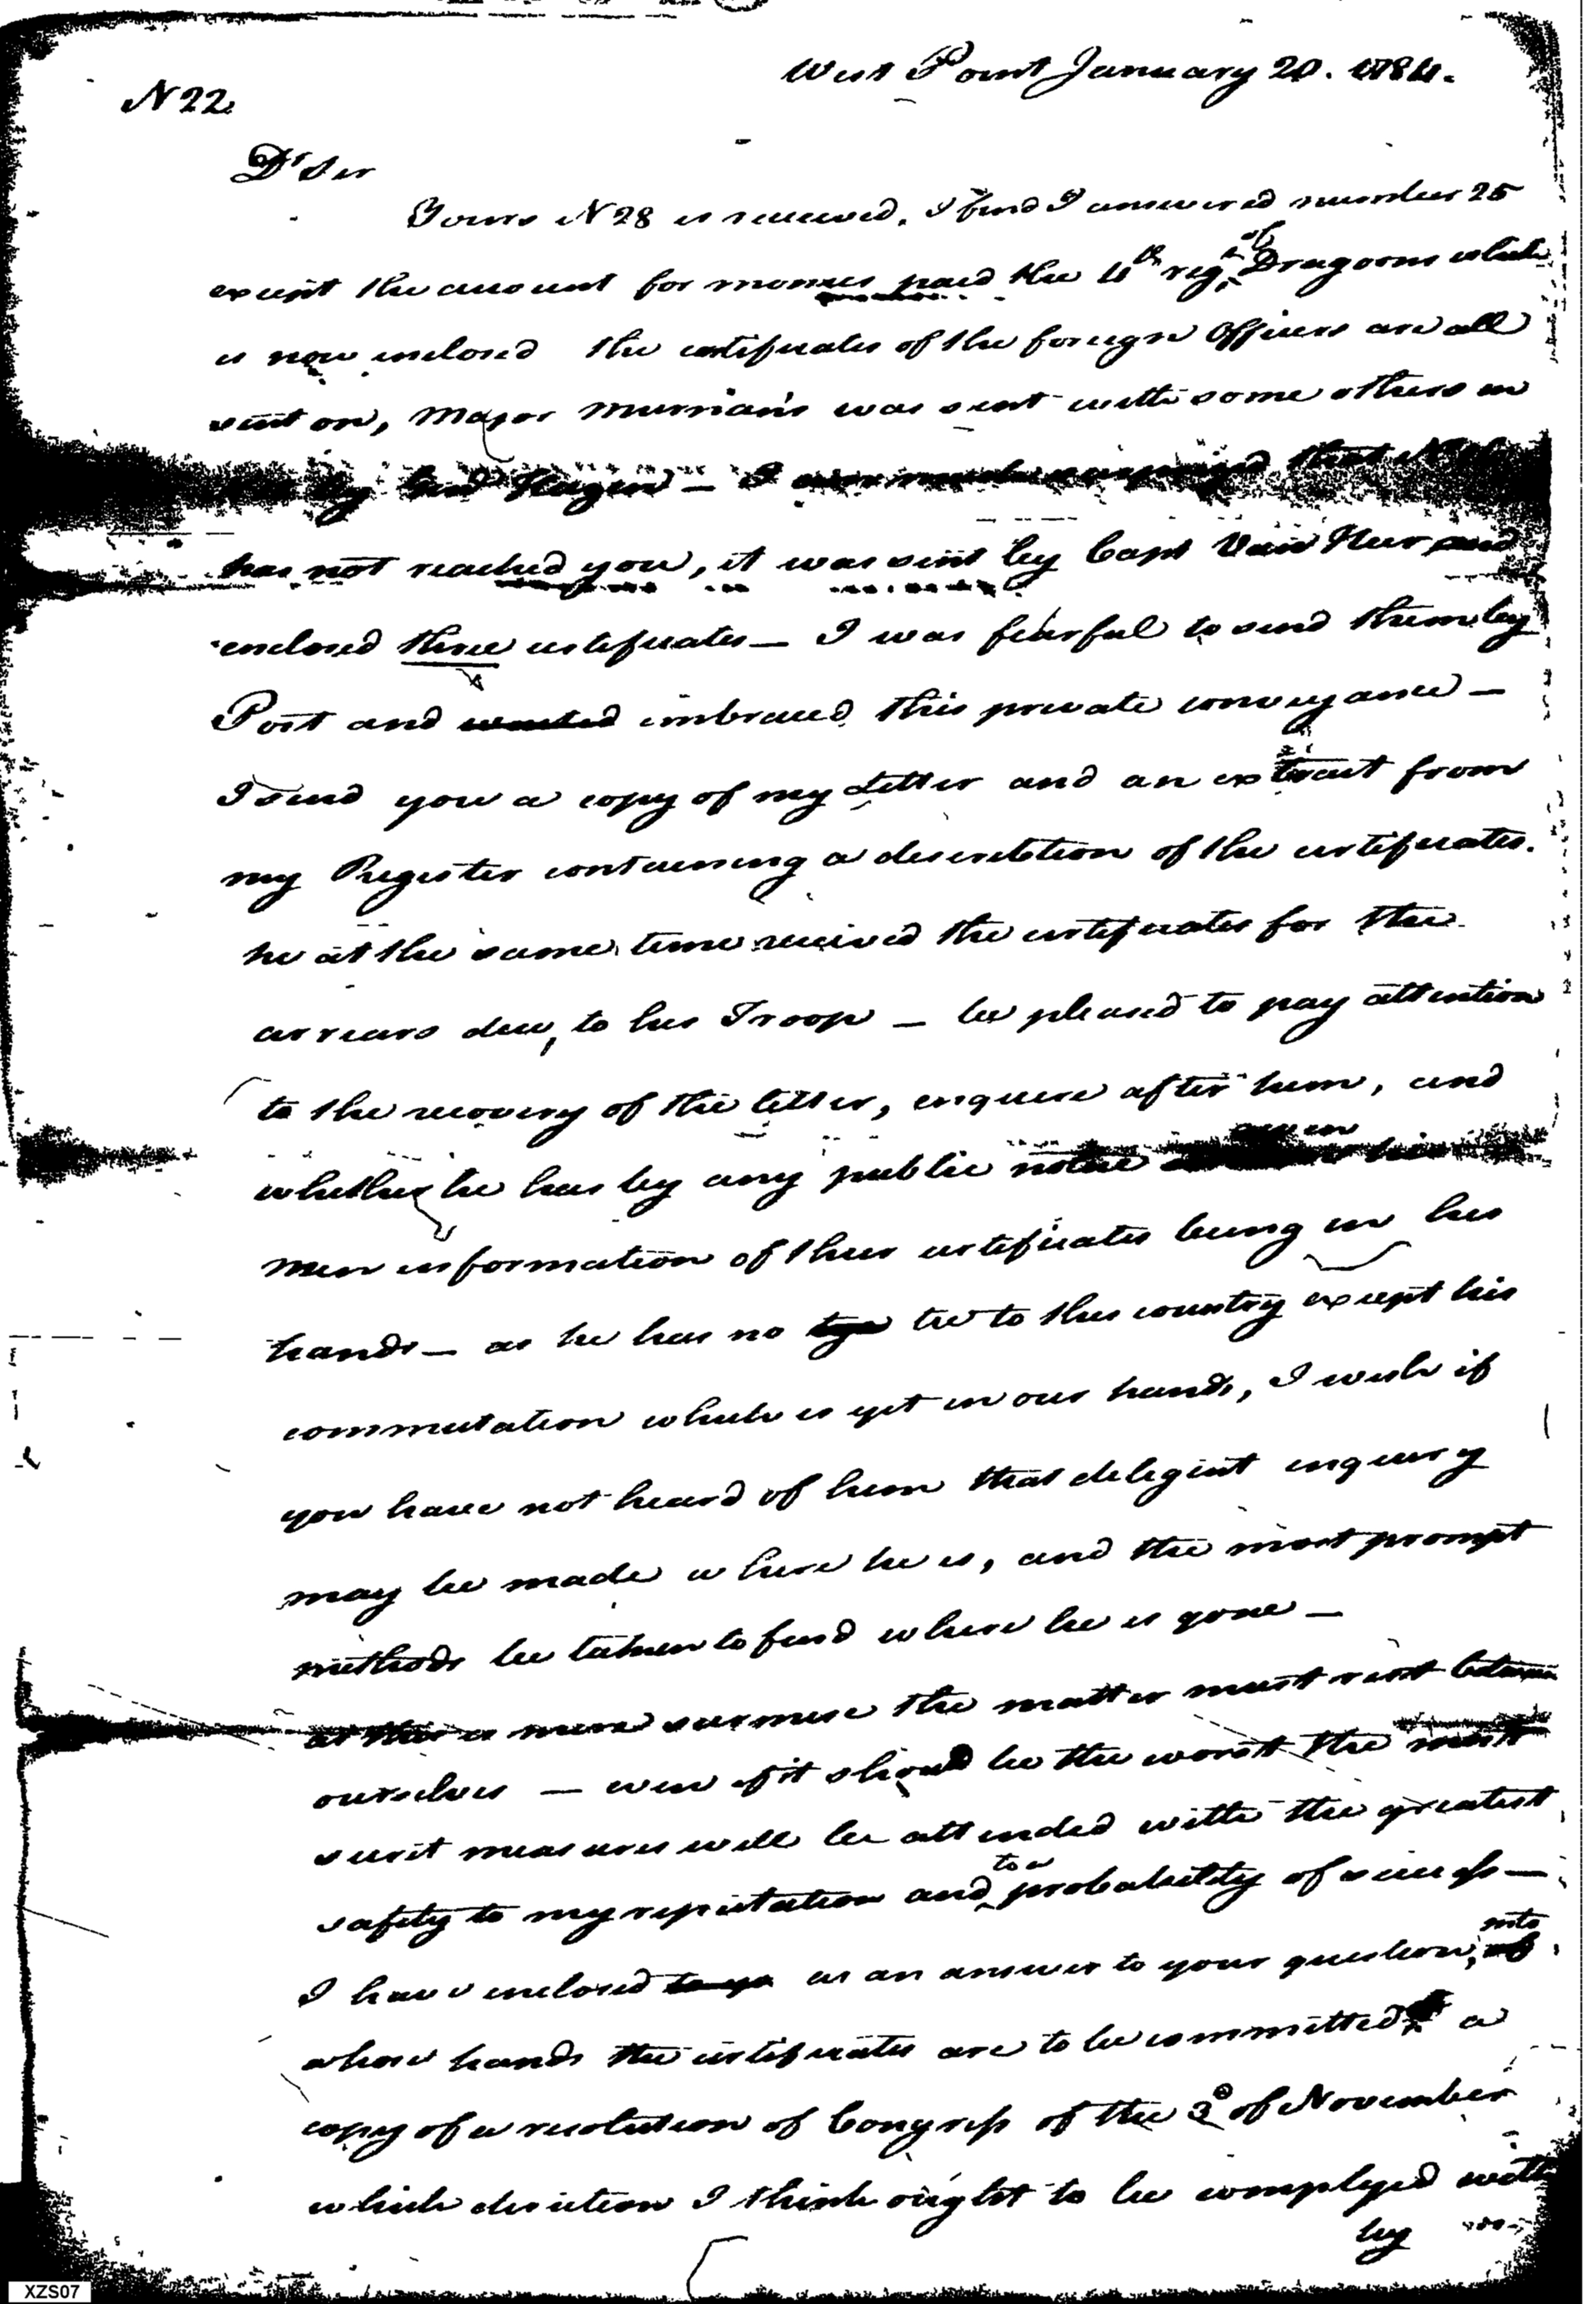 West Point January 20. 1784.
N 22
Dr Sir
Yours N 28 is received. I find I answered number 25
except the account for monies paid the 4th regt of Dragoons which
is now inclosed the certificates of the foreign Officers are all
sent on, Major Murnan's was sent with some others in
by Hazen — I am much surprized that N
has not reached you, it was sent by Capt Van Heer and
enclosed three certificates — I was fearful to send them by
Post and wanted embraced this private conveyance —
I send you a copy of my Letter and an extract from
my Register containing a description of the certificates.
he at the same time received the certificates for the
arrears due, to his Troop — be pleased to pay attention
to the recovery of the letter, enquire after him, and
whether he has by any public notice given his
men information of their certificates being in his
hands — as he has no tye tie to this country except his
commutation which is yet in our hands, I wish if
you have not heard of him that deligent enquiry
may be made where he is, and the most prompt
methods be taken to find where he is gone —
as this is mere surmise the matter must rest between
ourselves — even if it should be the worst the most
secret measures will be attended with the greatest
safety to my reputation and to a probability of success —
I have enclosed to yo as an answer to your question, of into
whose hands the certificates are to be committed a
copy of a resolution of Congress of the 3d of November
which direction I think ought to be complyed with
by
XZS07